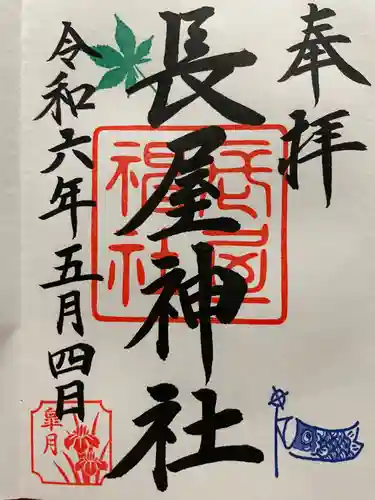 奉拝
長屋神社
令和六年五月四日
皐月